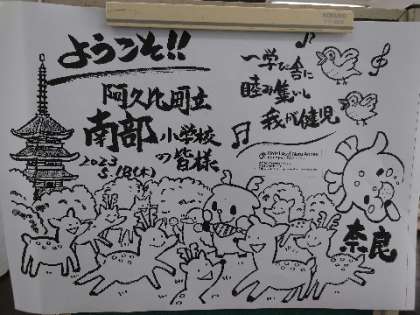 ようこそ!!
阿久比町立
南部小学校
の皆様
2023
5.18(木)
一学び舎に
睦み集いし
我れ健児
奈良